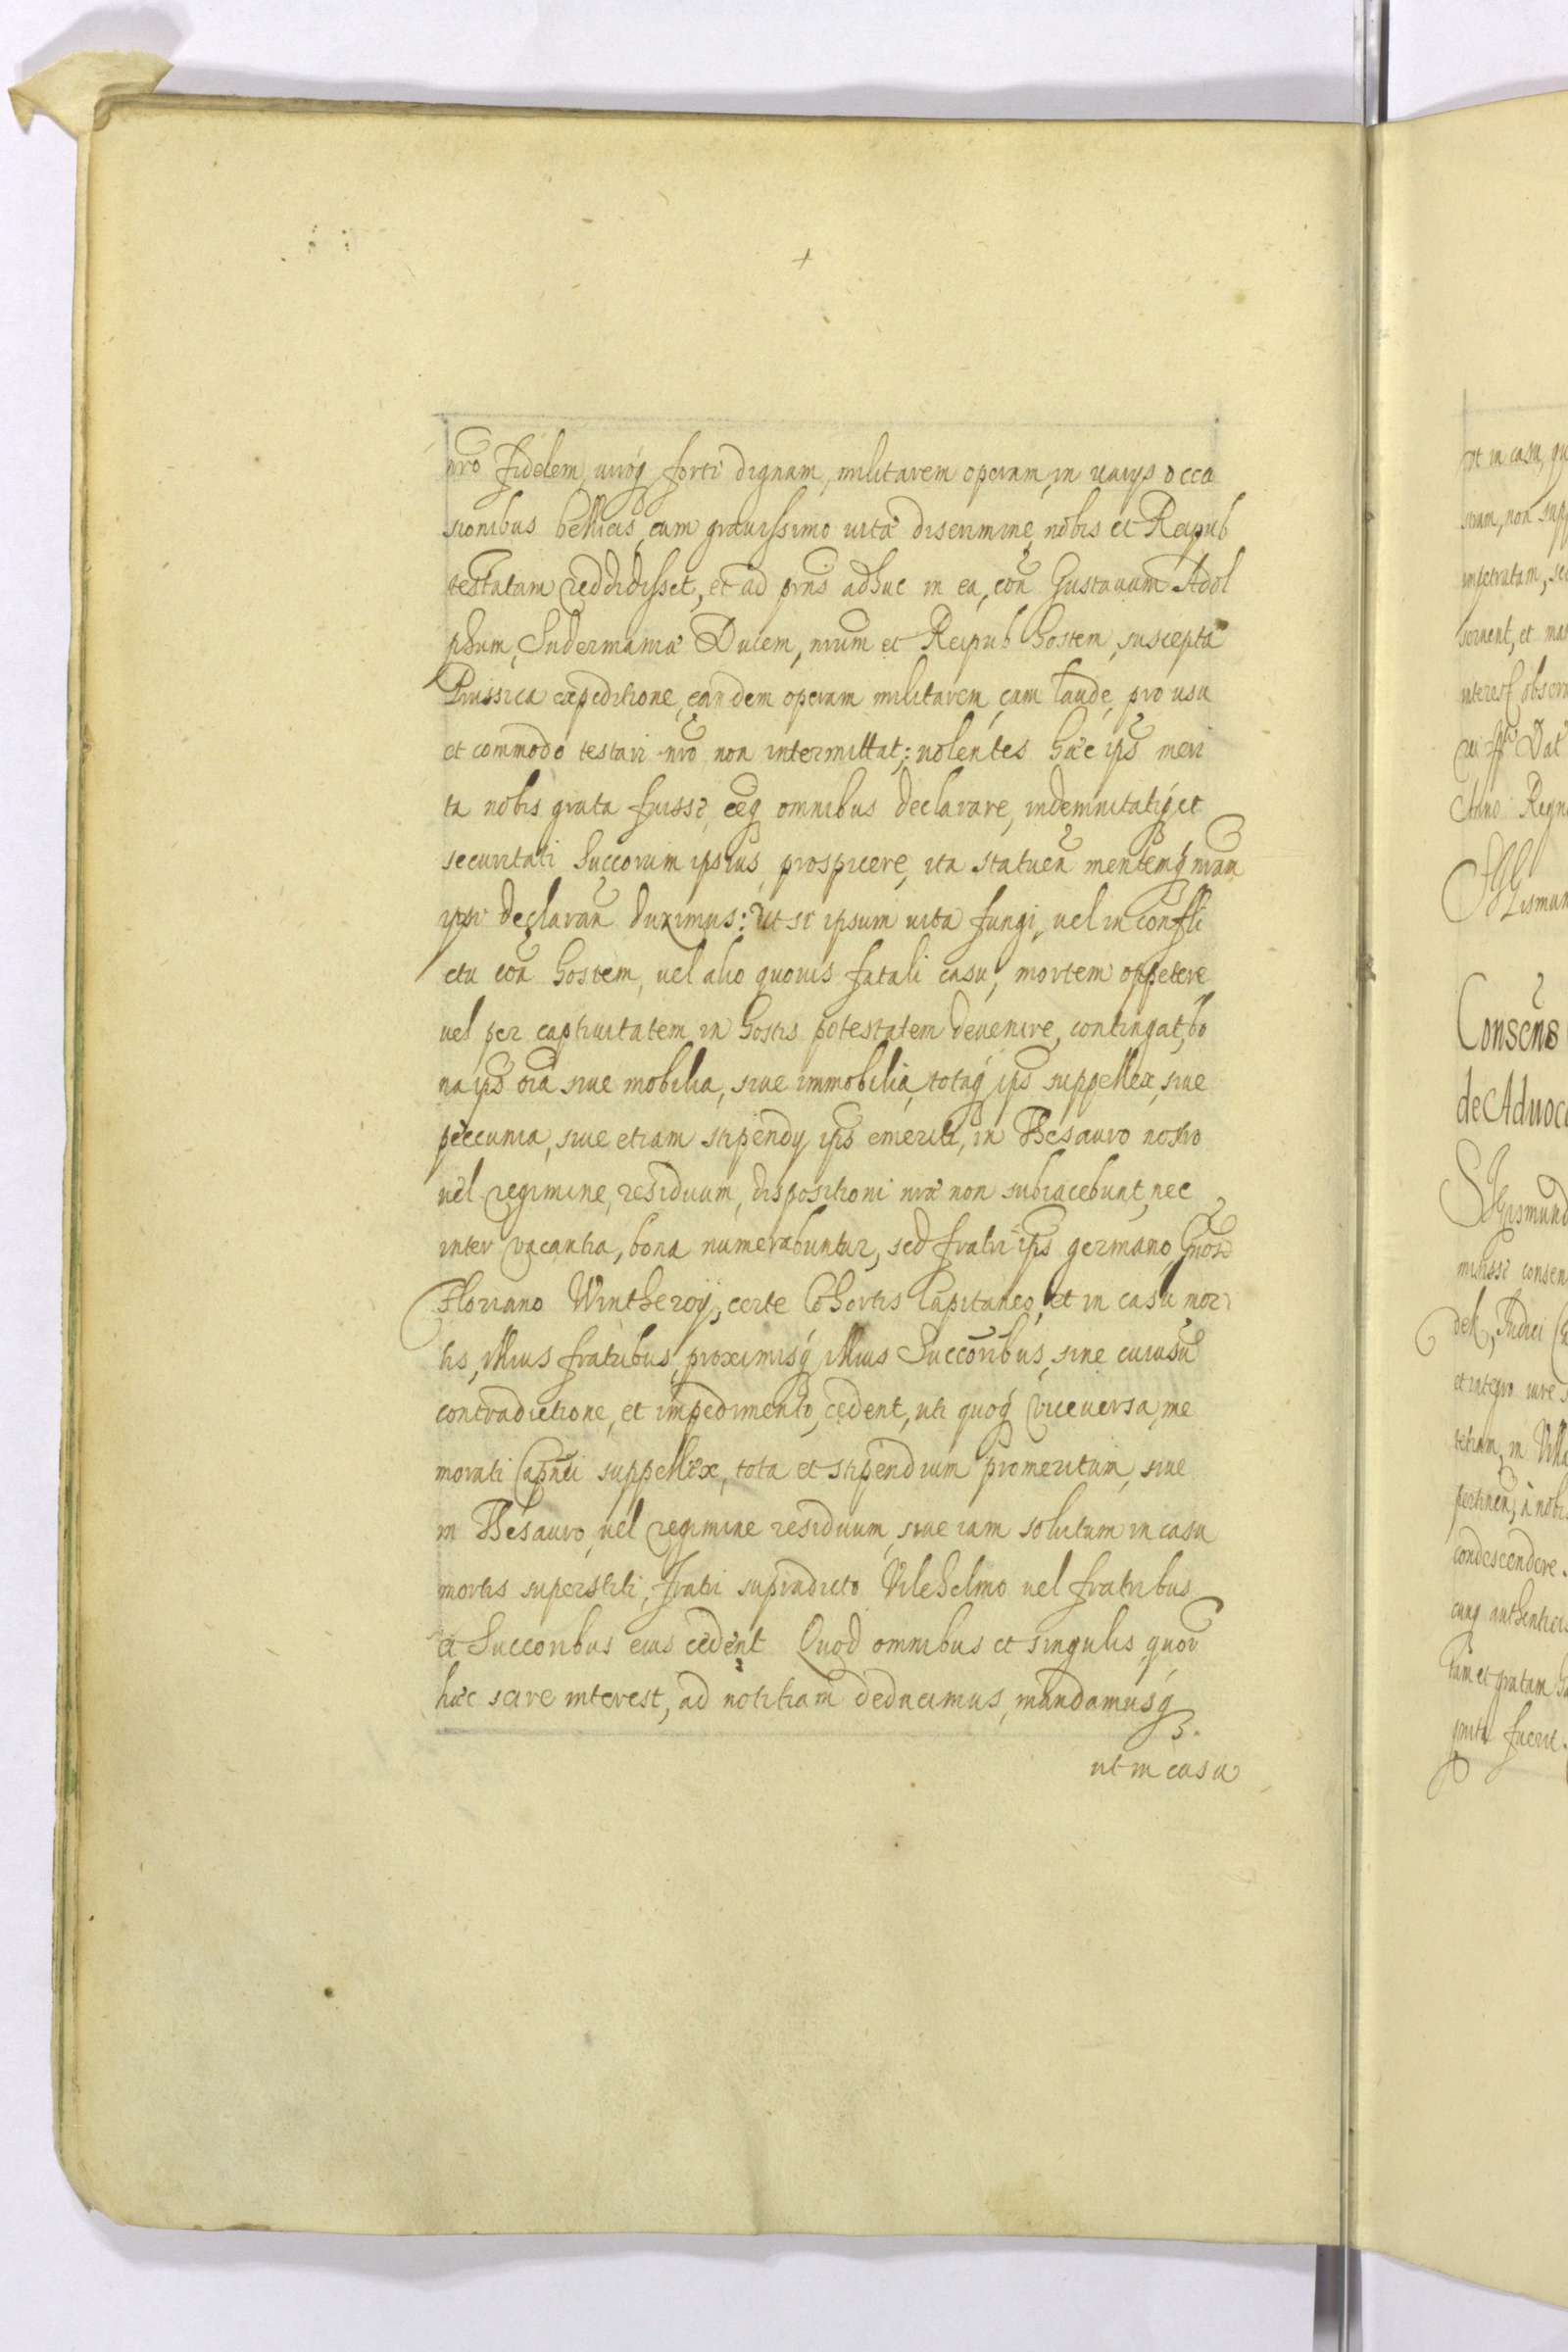 nro fidelem, uiroq forti dignam, militarem operam, in uarys occa
sionibus bellicis, cum grauissimo uitæ discrimine, nobis et Reipub
testatam reddidisset, et ad prns adhuc in ea, con Gustauum Adol
phum, Sudermaniæ Ducem, nrum et Reipub hostem, suscepta
Prussica expeditione, eandem operam militarem, cum laude, pro usu
et commodo testari nro non intermittat; uolentes hæc ips meri
ta nobis grata fuisse, eaq omnibus declarare, indemnitatiq et
securitati Succorum ipsius, prospicere, ita statuen mentemq nram
ipsi declaran duximus: Ut si ipsum uita fungi, uel in confli
ctu con hostem, uel alio quouis fatali casu, mortem oppetere
uel per captiuitatem in hostis potestatem deuenire, contingat, bo
na ips oia siue mobilia, siue immobilia, totaq ips suppellex, siue
peccunia, siue etiam stipendy ips emeriti, in Thesauro nostro
uel regimine, residuum, dispositioni nræ non subiacebunt, nec
inter vacantia, bona numerabuntur, sed fratri ips germano, Gnoso
Floriano Wintheroy, certe Cohortis Capitaneo, et in casu mor
tis, illius fratribus, proximisq illius Succoribus, sine cuiusuis
contradictione, et impedimento, cedent, uti quoq viceuersa, me
morati Capnei suppellex, tota et stipendium promeritum, siue
in Thesauro, uel regimine residuum, siue iam solutum in casu
mortis superstiti, fratri supradicto Vilehelmo uel fratribus
et Succoribus eius cedent Quod omnibus et singulis, quor
hæc scire interest, ad notitiam deducimus, mandamusq
ut in casu
ut in casu, qu
stram, non supp
impetratam, se
seruent, et ma
interest obser
Dat
Anno Regn
Consens
de Aduoc
Sigismund
misisse consen
dek, Iudici
et integro iure
in Ville
pertinen, à nobis
condescendere.
cunq authentici
tum et gratam
fuerit.